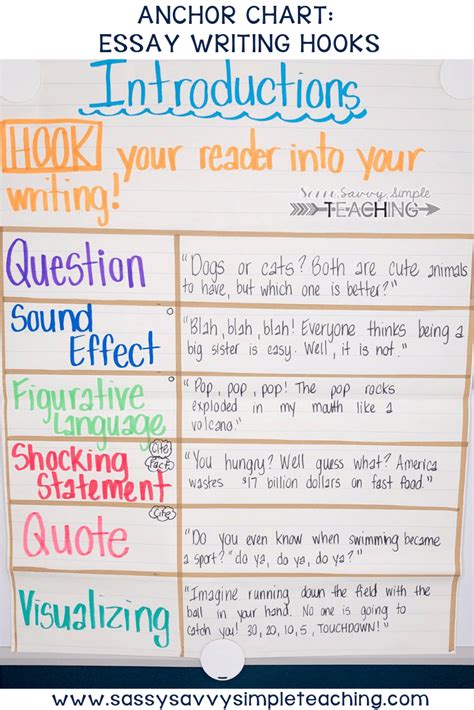 ANCHOR CHART:
ESSAY WRITING HOOKS
Introductions
HOOK your reader into your
writing!
Savvy, Simple
TEACHING
Question
"Dogs or cats? Both are cute animals
to have, but which one is better?"
Sound
Effect
"Blah, blah, blah! Everyone thinks being a
big sister is easy. Well, it is not."
Figurative
Language
"Pop, pop, pop! The pop rocks
exploded in my mouth like a
volcano."
Shocking
Statement
Cite
Fact
"You hungry? Well guess what? America
wastes $17 billion dollars on fast food."
Quote
Cite
"Do you even know when swimming became
a sport? "do ya, do ya, do ya?"
Visualizing
"Imagine running down the field with the
ball in your hand. No one is going to
catch you! 30, 20, 10, 5, TOUCHDOWN!"
www.sassysavvysimpleteaching.com